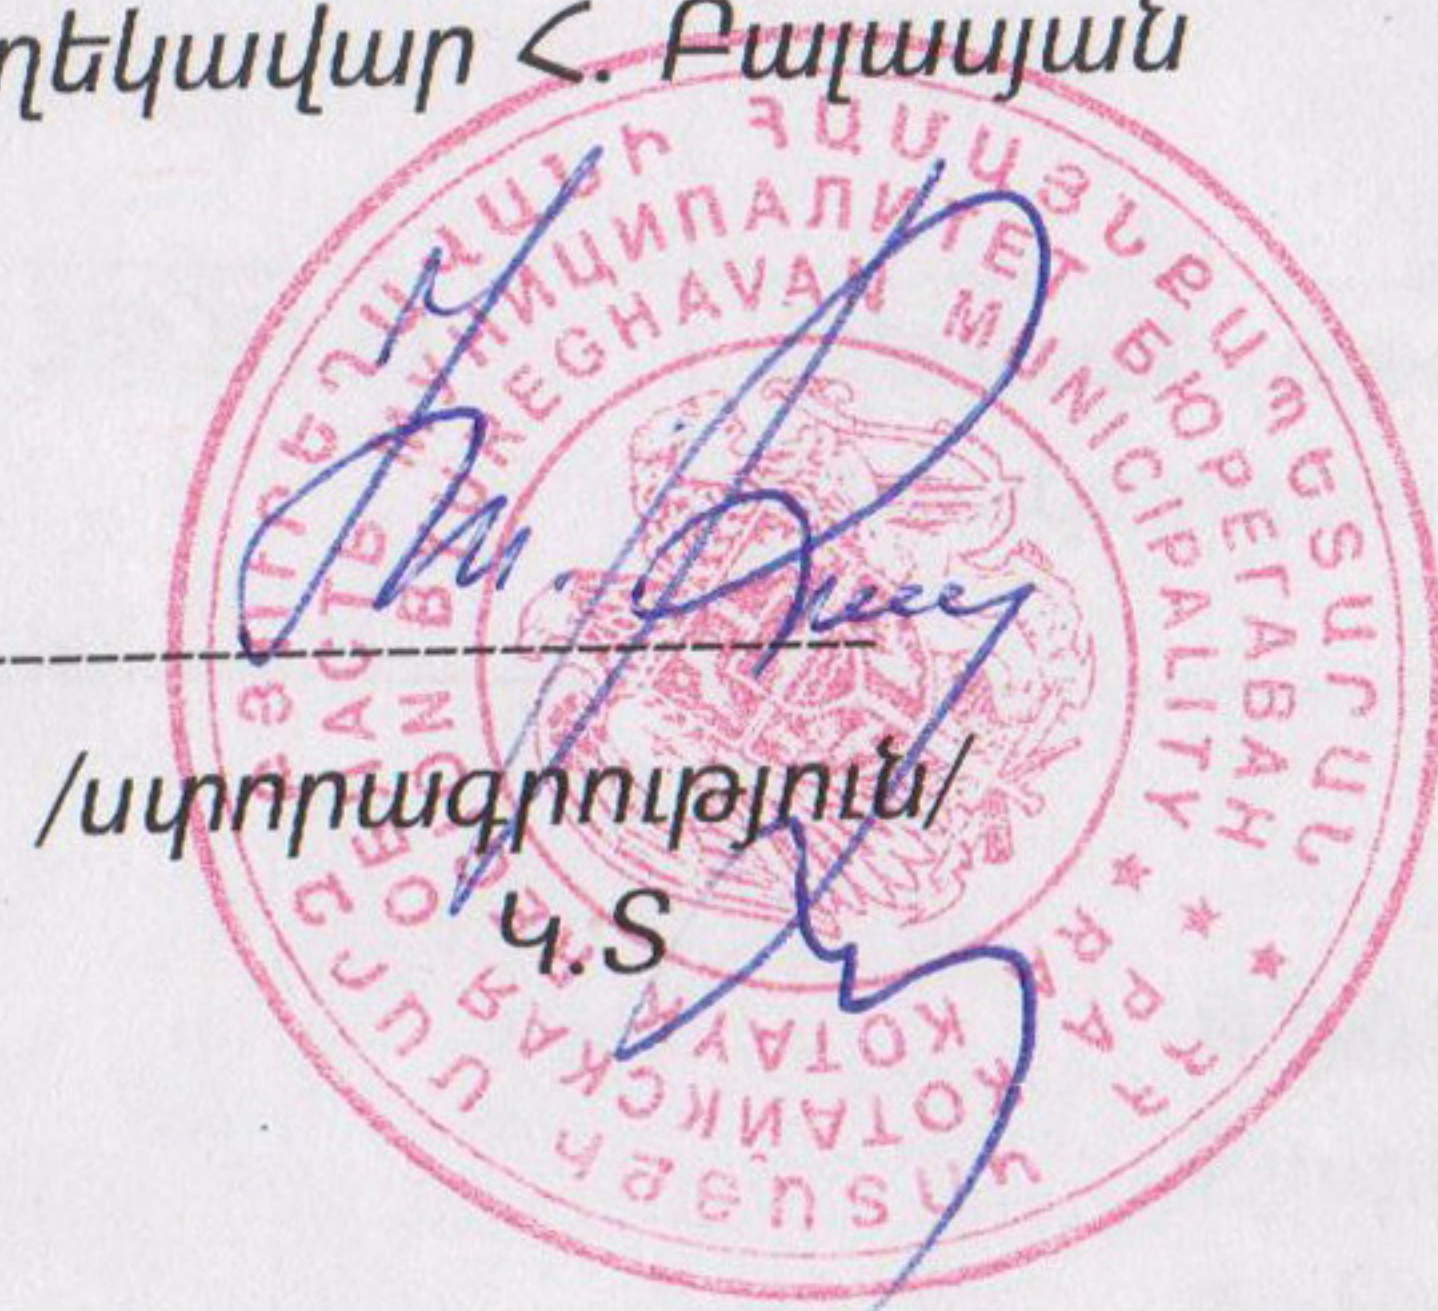 ղեկավար Հ. Բալասյան
/ստորագրություն/
Կ.Տ
ՀՀ ԿՈՏԱՅՔԻ ՄԱՐԶ ԲՅՈՒՐԵՂԱՎԱՆԻ ՀԱՄԱՅՆՔԱՊԵՏԱՐԱՆ
РА КОТАЙКСКАЯ ОБЛАСТЬ МУНИЦИПАЛИТЕТ БЮРЕГАВАН
RA KOTAYK REGION BYUREGHAVAN MUNICIPALITY